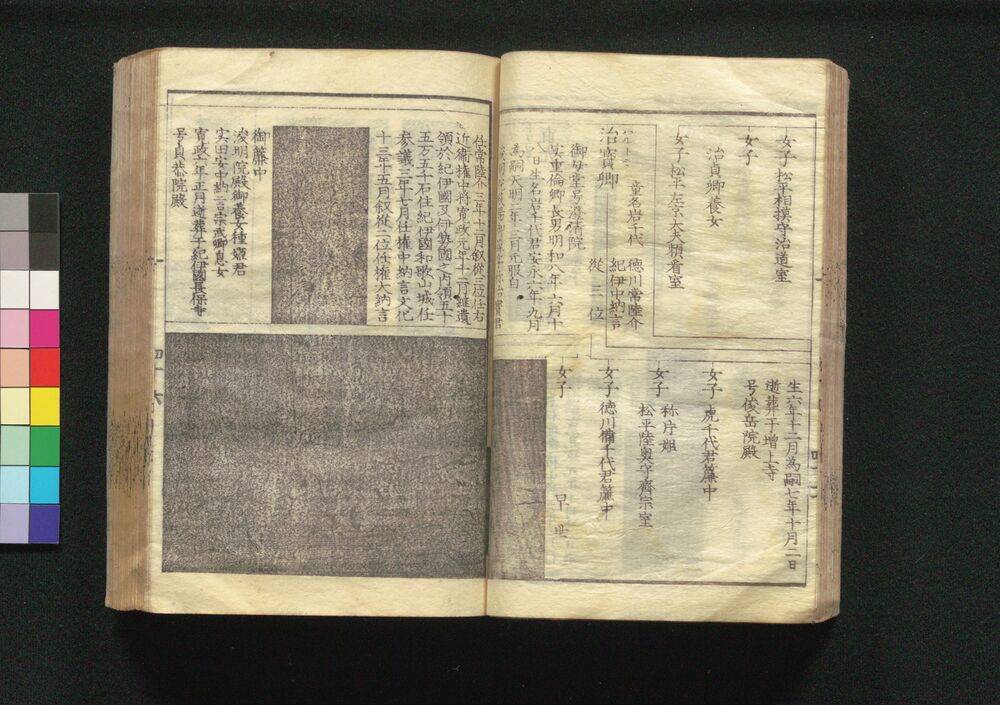 女子 松平相摸守治道室
女子
治貞卿養女
女子 松平左京大夫頼看室
治寳卿
童名岩千代
徳川常陸介
紀伊中納言
従三位
御母堂号澄清院
実重倫卿長男明和八年六月十
八日生名岩千代君安永六年九月
為嗣天明二年二月元服
生六年十二月為嗣七年十月二日
逝葬于増上寺
号俊岳院殿
女子 虎千代君簾中
女子 称庁姫
松平陸奥守齊宗室
女子 徳川備千代君簾中
女子 早世
任常陸介三年十二月叙従三位任右
近衛権中将寛政元年十二月継遺
領於紀伊國及伊勢國之内領五十
五万五千石住紀伊國和歌山城任
参議三年七月任権中納言文化
十三年五月叙従二位任権大納言
御簾中
浚明院殿御養女種姫君
实田安中納言宗武卿息女
寛政六年正月逝葬于紀伊國長保寺
号貞恭院殿
四十六